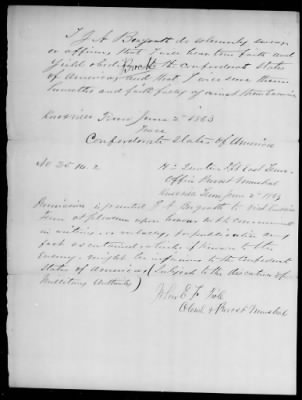 I J A Bizzott do solemnly swear
or affirm that I will bear true faith and
yield obedience to the Confederate States
of America and that I will serve them
honestly and faithfully against their enemies
Knoxville Tenn June 2d 1863
Confederate States of America
No 25
Hd Quarters Dept East Tenn
Office Provost Marshal
Knoxville Tenn June 2d 1863
Permission is granted J A Bizzott to visit
Tenn at pleasure upon honor not to communicate
in writing or verbally for publication any
fact ascertained which if known to the
Enemy might be injurious to the Confederate
States of America (Subject to the discretion of
Military Authority)
John E
Colonel & Provost Marshal